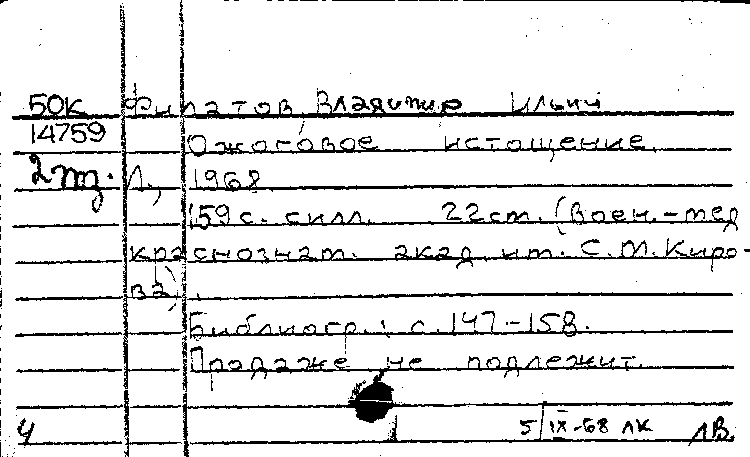 50к Филатов, Владимир Ильич
14759 Ожоговое истощение.
2 экз. Л., 1968.
159с. с илл. 22см. (Воен.-мед.
краснознам. акад. им. С.М.Киро-
ва).
Библиогр.: с.147-158.
Продаже не подлежит.
4 5/IX-68 ЛК ЛВ.